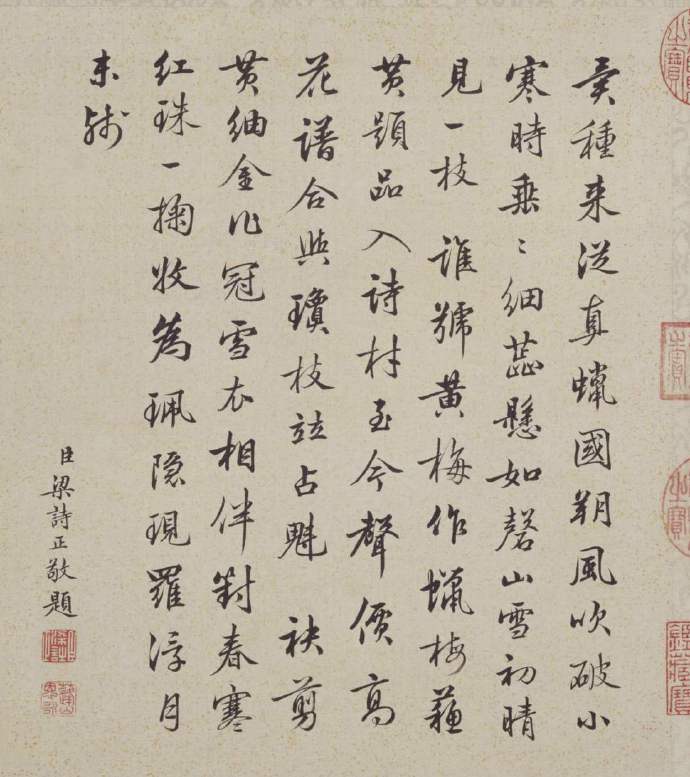 異種来從真蠟國朔風吹破小
寒時垂〻細蕊懸如磬山雪初晴
見一枝 誰號黄梅作蠟梅蘓
黄題品入詩材至今聲價高
花譜合與瓊枝竝占魁 袂剪
黄紬金作冠雪衣相伴對春寒
紅珠一掬收為珮隐現羅浮月
未殘
臣梁詩正敬題